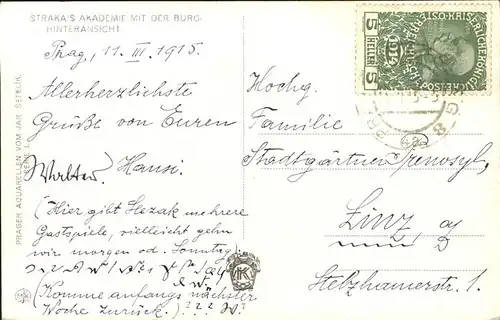 STRAKA'S AKADEMIE MIT DER BURG.
HINTERANSICHT
Prag, 11. III. 1915.
Allerherzlichste
Grüße von Euren
Walter. Hansi.
(Hier gibt Slezak mehrere
Gastspiele, vielleicht gehn
wir morgen od. Sonntag)
(Komme anfangs nächster
Woche zurück.) ???
PRAGER AQUARELLEN VOM JAR. SETELIK.
Hochg.
Familie
Stadtgärtner
Linz, a/
D
Stelzhamerstr. 1.
5 HELLER 5
1914